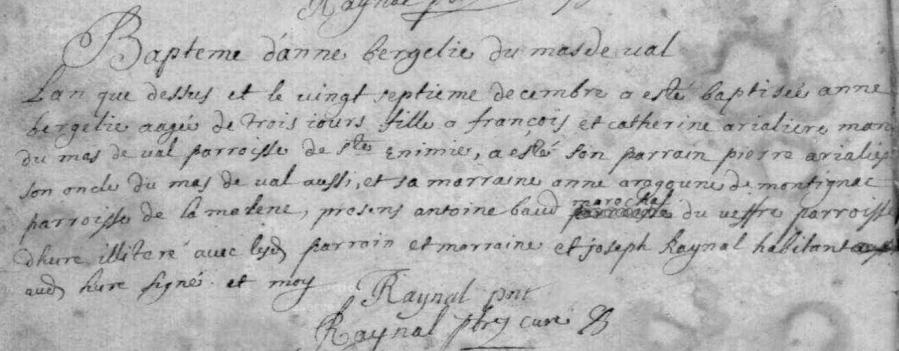 Raynal
Bapteme d'anne bergelie du mas de val
Lan que dessus et le vingt septieme decembre a esté baptisée anne
bergelie aagée de trois iours fille a françois et catherine arialiere mari
du mas de val parroisse de ste Enimie, a esté son parrain pierre arialie
son oncle du mas de val aussi, et sa marraine anne aragoune de montignac
parroisse de la malene, presens antoine baud marochal du veffre parroisse
dhure illiteré avec lesd parroin et marraine et joseph Raynal habitant
aud hure signé et moy
Raynal pnt
Raynal pbre curé